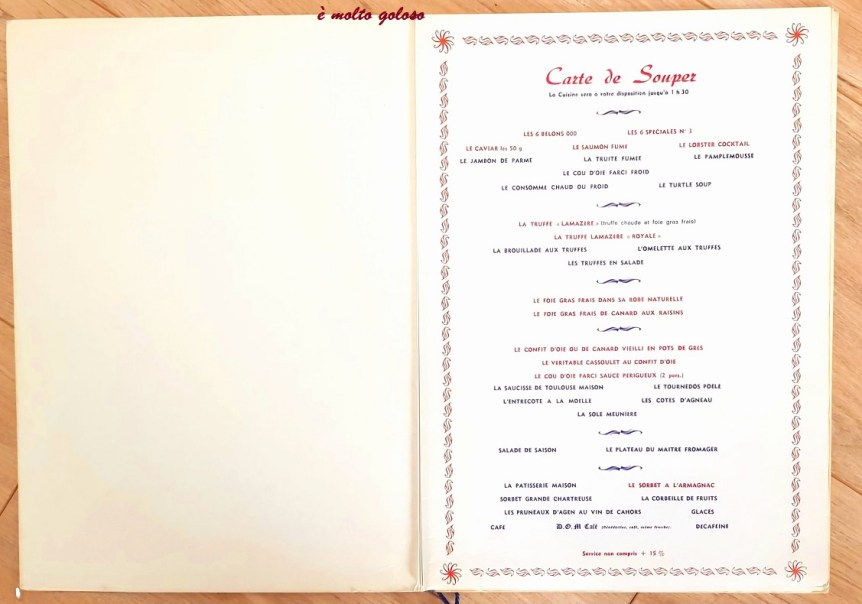 è molto goloso
Carte de Souper
La Cuisine sera a votre disposition jusqu'à 1 h 30
LES 6 BELONS 000 LES 6 SPECIALES N° 3
LE CAVIAR les 50 g LE SAUMON FUME LE LOBSTER COCKTAIL
LE JAMBON DE PARME LA TRUITE FUMEE LE PAMPLEMOUSSE
LE COU D'OIE FARCI FROID
LE CONSOMME CHAUD OU FROID LE TURTLE SOUP
LA TRUFFE « LAMAZERE » (truffe chaude et foie gras frais)
LA TRUFFE LAMAZERE « ROYALE »
LA BROUILLADE AUX TRUFFES L'OMELETTE AUX TRUFFES
LES TRUFFES EN SALADE
LE FOIE GRAS FRAIS DANS SA ROBE NATURELLE
LE FOIE GRAS FRAIS DE CANARD AUX RAISINS
LE CONFIT D'OIE OU DE CANARD VIEILLI EN POTS DE GRES
LE VERITABLE CASSOULET AU CONFIT D'OIE
LE COU D'OIE FARCI SAUCE PERIGUEUX (2 pers.)
LA SAUCISSE DE TOULOUSE MAISON LE TOURNEDOS POELE
L'ENTRECOTE A LA MOELLE LES COTES D'AGNEAU
LA SOLE MEUNIERE
SALADE DE SAISON LE PLATEAU DU MAITRE FROMAGER
LA PATISSERIE MAISON LE SORBET A L'ARMAGNAC
SORBET GRANDE CHARTREUSE LA CORBEILLE DE FRUITS
LES PRUNEAUX D'AGEN AU VIN DE CAHORS GLACES
CAFE D.O.M Café (Bénédictine, café, crème fraiche) DECAFEINE
Service non compris + 15 %